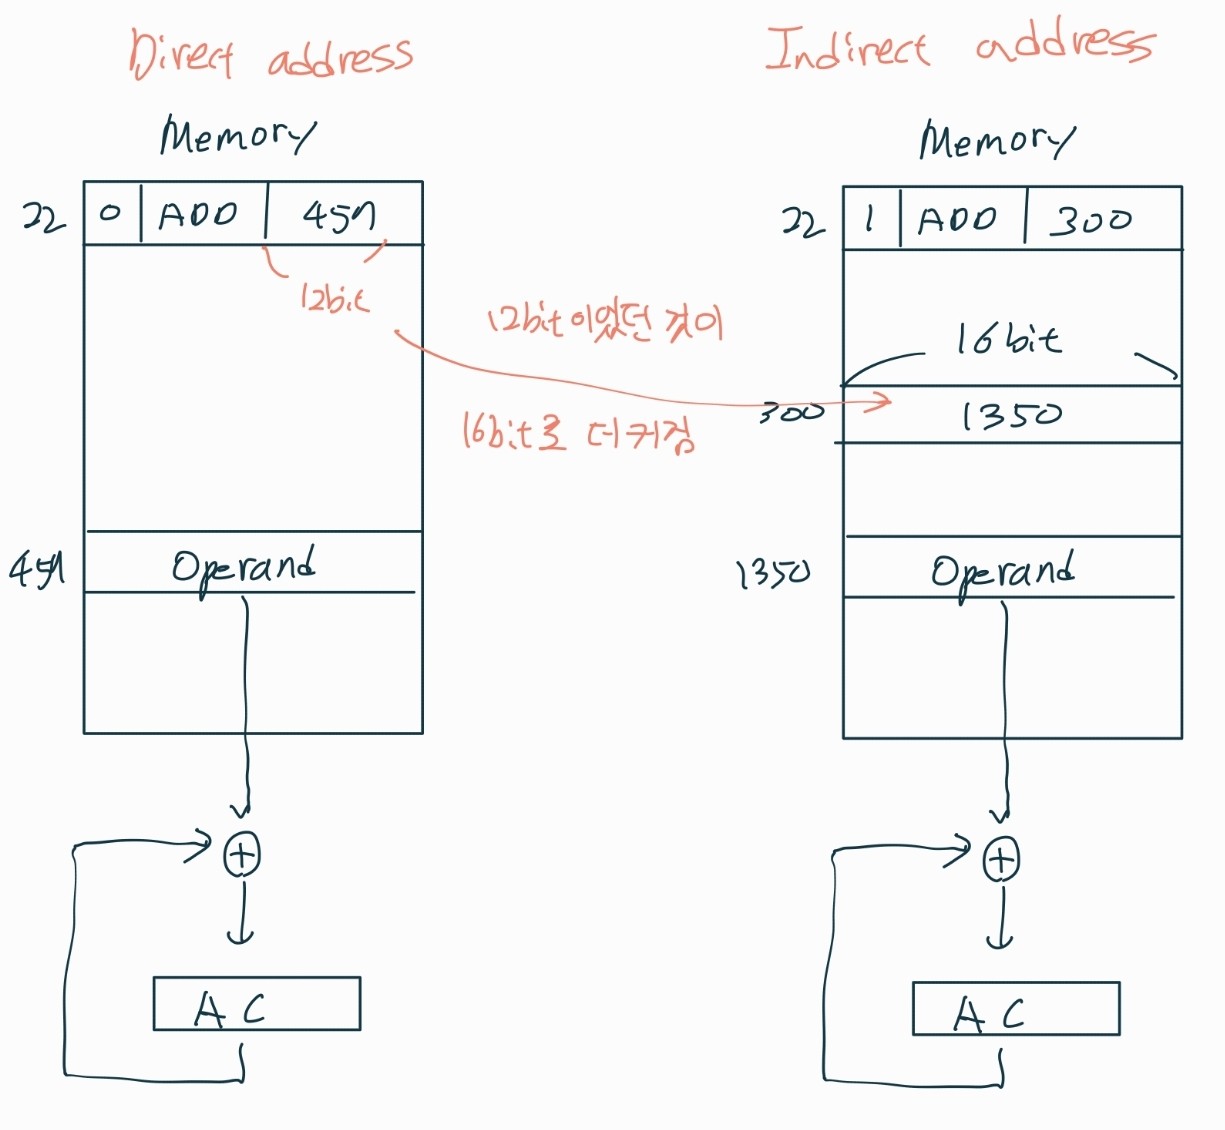 Direct address
Memory
22 0 ADD 457
12bit
457 Operand
+
AC
12bit 이었던 것이
16bit로 더 커짐
Indirect address
Memory
22 1 ADD 300
16bit
300 1350
1350 Operand
+
AC